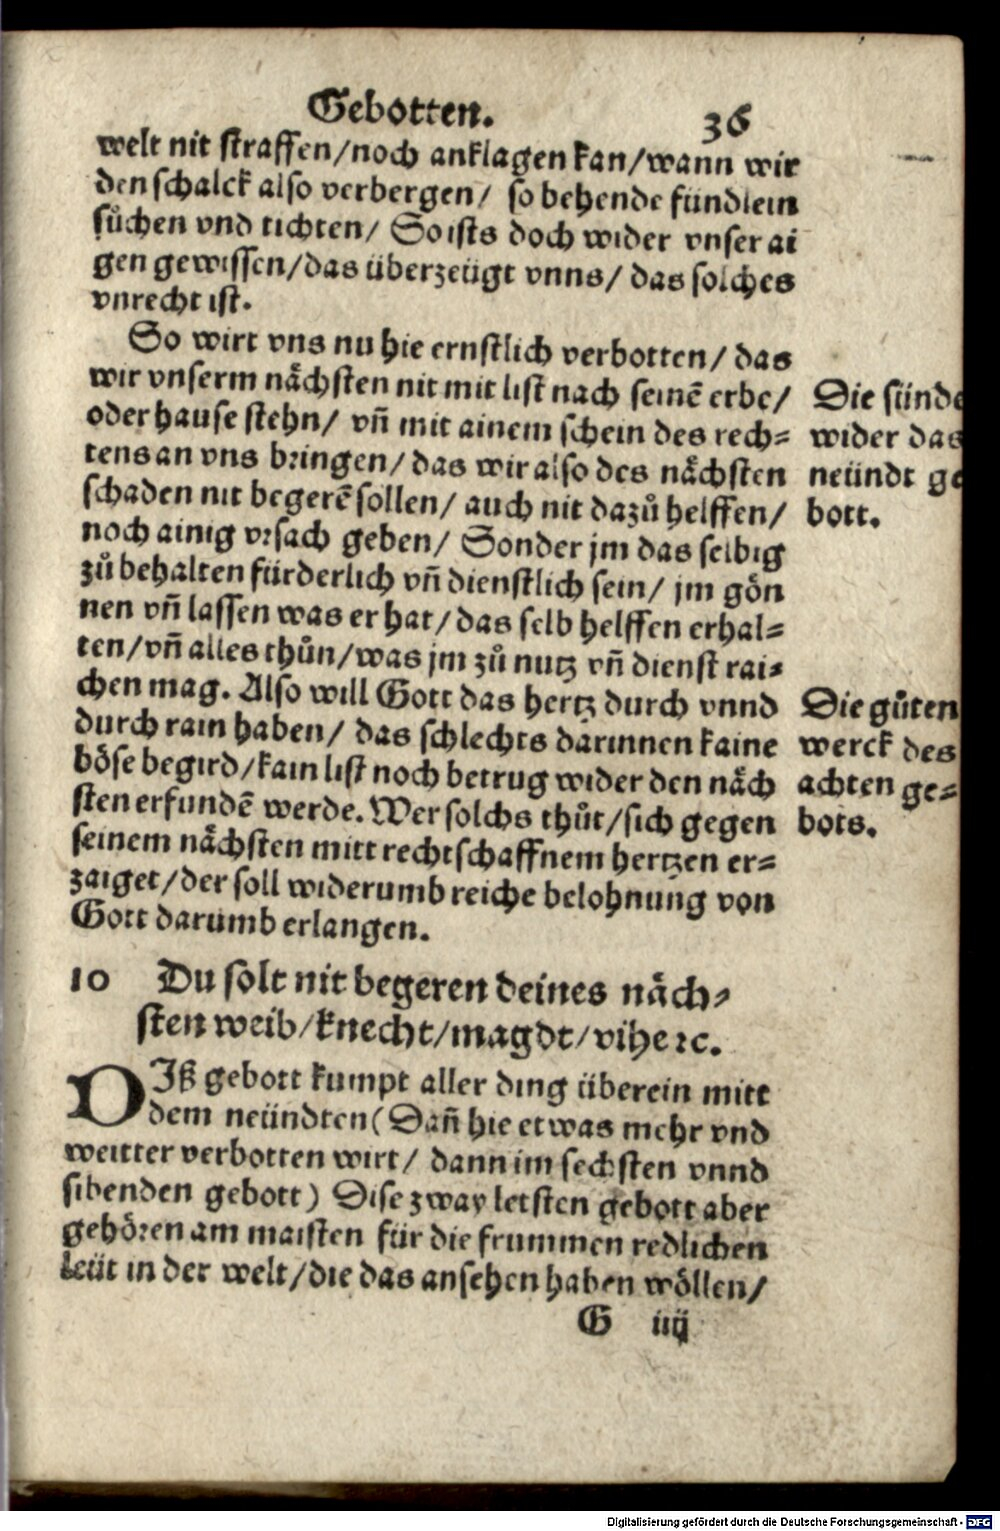 Gebotten. 36
welt nit straffen/noch anklagen kan/wann wir
den schalck also verbergen/ so behende fündlein
sůchen vnd tichten/ So ists doch wider vnser ai
gen gewissen/das überzeügt vnns/ das solches
vnrecht ist.
So wirt vns nu hie ernstlich verbotten/ das
wir vnserm nächsten nit mit list nach seinē erbe/
oder hause stehn/ vn̄ mit ainem schein des rech=
tens an vns bringen/ das wir also des nächsten
schaden nit begerē sollen/ auch nit dazů helffen/
noch ainig vrsach geben/ Sonder jm das selbig
zů behalten fürderlich vn̄ dienstlich sein/ jm gön
nen vn̄ lassen was er hat/ das selb helffen erhal=
ten/ vn̄ alles thůn/ was jm zů nutz vn̄ dienst rai=
chen mag. Also will Gott das hertz durch vnnd
durch rain haben/ das schlechts darinnen kaine
böse begird/ kain list noch betrug wider den näch
sten erfundē werde. Wer solchs thůt/ sich gegen
seinem nächsten mitt rechtschaffnem hertzen er=
zaiget/ der soll widerumb reiche belohnung von
Gott darumb erlangen.
Die sünde
wider das
neündt ge
bott.
Die gůten
werck des
achten ge=
bots.
10 Du solt nit begeren deines näch=
sten weib/ knecht/ magdt/ vihe ꝛc.
DIß gebott kumpt aller ding überein mitt
dem neündten (Dan̄ hie etwas mehr vnd
weitter verbotten wirt/ dann im sechsten vnnd
sibenden gebott) Dise zway letsten gebott aber
gehören am maisten für die frummen redlichen
leüt in der welt/ die das ansehen haben wöllen/
G iiij
Digitalisierung gefördert durch die Deutsche Forschungsgemeinschaft - DFG